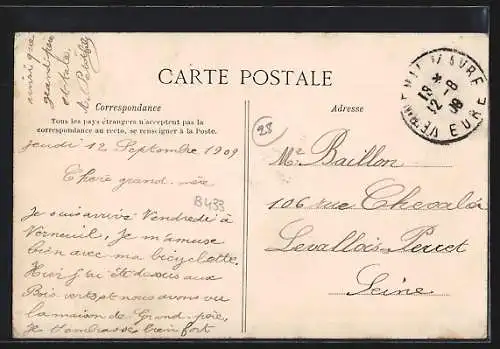 ainsi que
grand-père
et tale.
CARTE POSTALE
Correspondance
Tous les pays étrangers n'acceptent pas la
correspondance au recto, se renseigner à la Poste.
Adresse
VERNEUIL S/ AVRE
12 -8
12 08
EURE
28
B433
Jeudi 12 Septembre 1909
Chère grand-mère
Je suis arrivé Vendredi à
Verneuil, Je m'amuse
bien avec ma bicyclette.
Hier j'ai été dessus aux
Bois verts et nous avons vu
la maison de Grand-père,
Je t'embrasse bien fort
Mr Baillon
106 rue Chevalier
Levallois-Perret
Seine